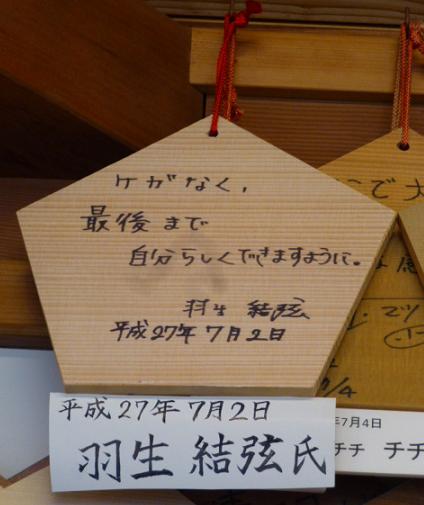 ケガなく,
最後まで
自分らしくできますように。
羽生 結弦
平成27年7月2日
平成27年7月2日
羽生 結弦氏
こで大
年7月4日
チチ チチ